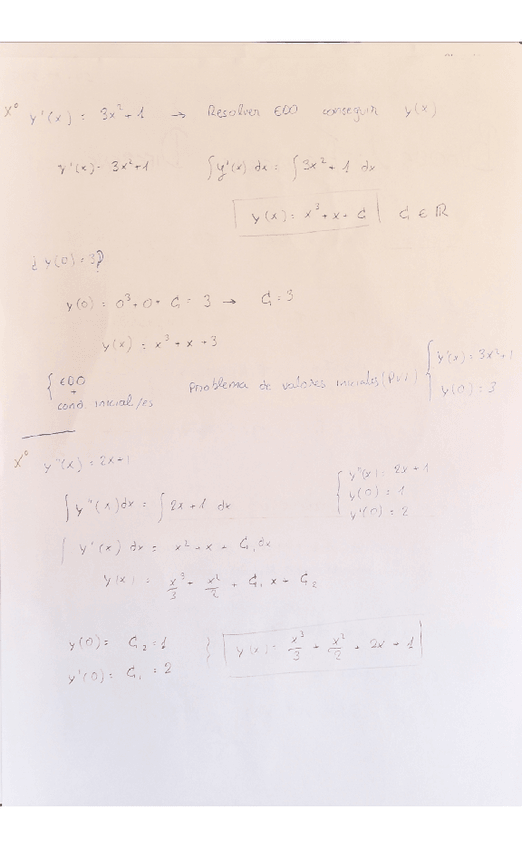 Xº y'(x) = 3x²+1 → Resolver EDO conseguir y(x)
y'(x) = 3x²+1 ∫y'(x) dx = ∫3x²+1 dx
y(x) = x³+x+C₁ C₁ ∈ ℝ
¿y(0)=3?
y(0) = 0³+0+C₁ = 3 → C₁=3
y(x) = x³+x+3
{ EDO + cond. inicial/es Problema de valores iniciales (PVI) { y'(x) = 3x²+1
y(0) = 3
Xº y''(x) = 2x+1
{ y''(x) = 2x+1
y(0) = 1
y'(0) = 2
∫y''(x) dx = ∫2x+1 dx
∫y'(x) dx = x²+x+C₁ dx
y(x) = x³/3 + x²/2 + C₁x + C₂
y(0) = C₂ = 1
y'(0) = C₁ = 2
} y(x) = x³/3 + x²/2 + 2x + 1